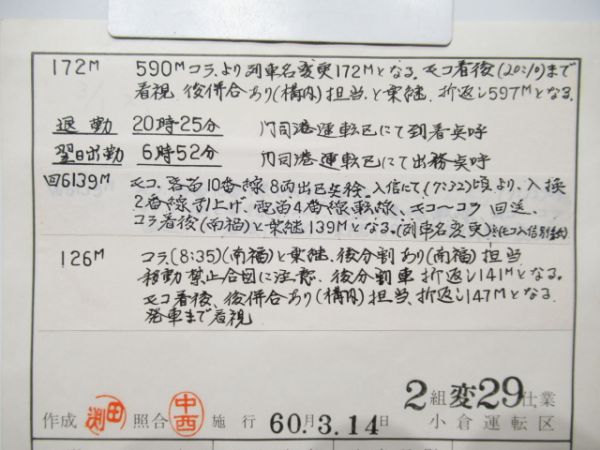 172M 590Mコラより列車名変更172Mとなる。モコ着後(20:10)まで
看視 後併合あり(構内)担当と乗継、折返し597Mとなる。
退勤 20時25分 門司港運転区にて到着点呼
翌日出勤 6時52分 門司港運転区にて出務点呼
回6139M モコ、10番線8両出区点検、入信にて(7:32)頃より、入換
2番線引上げ、4番線転線、モコ〜コラ 回送、
コラ着後(南福)と乗継139Mとなる。(列車名変更)
126M コラ(8:35)(南福)と乗継、後分割あり(南福)担当
移動禁止合図に注意、後分割車折返し141Mとなる。
モコ着後、後併合あり(構内)担当、折返し147Mとなる。
発車まで看視
2組変29仕業
作成 渕田 照合 中西 施行 60月3.14日 小倉運転区